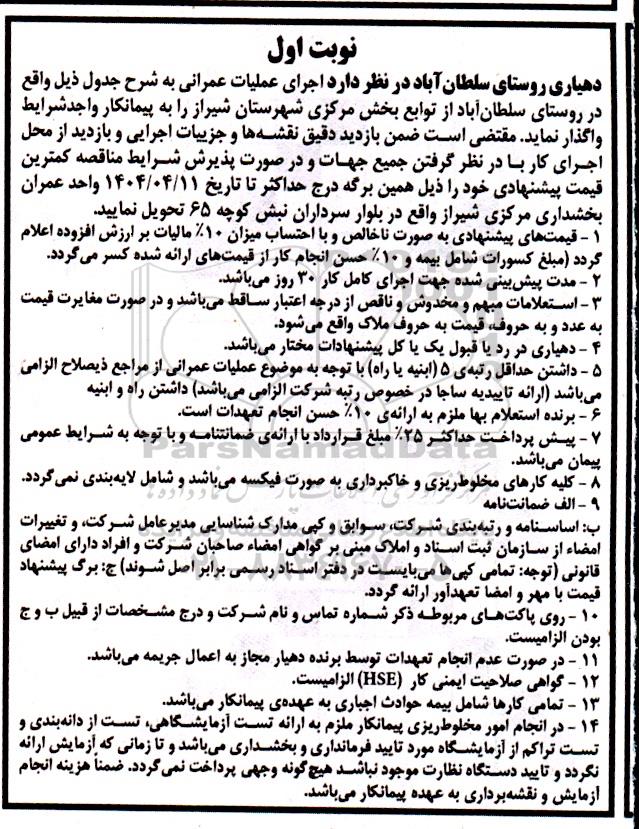 نوبت اول
دهیاری روستای سلطان‌آباد در نظر دارد اجرای عملیات عمرانی به شرح جدول ذیل واقع
در روستای سلطان‌آباد از توابع بخش مرکزی شهرستان شیراز را به پیمانکار واجدشرایط
واگذار نماید. مقتضی است ضمن بازدید دقیق نقشه‌ها و جزییات اجرایی و بازدید از محل
اجرای کار با در نظر گرفتن جمیع جهات و در صورت پذیرش شرایط مناقصه کمترین
قیمت پیشنهادی خود را ذیل همین برگه درج حداکثر تا تاریخ ۱۴۰۴/۰۴/۱۱ واحد عمران
بخشداری مرکزی شیراز واقع در بلوار سرداران نبش کوچه ۶۵ تحویل نمایید.
۱ - قیمت‌های پیشنهادی به صورت ناخالص و با احتساب میزان ۱۰٪ مالیات بر ارزش افزوده اعلام
گردد (مبلغ کسورات شامل بیمه و ۱۰٪ حسن انجام کار از قیمت‌های ارائه شده کسر می‌گردد.
۲ - مدت پیش‌بینی شده جهت اجرای کامل کار ۳۰ روز می‌باشد.
۳ - استعلامات مبهم و مخدوش و ناقص از درجه اعتبار ساقط می‌باشد و در صورت مغایرت قیمت
به عدد و به حروف، قیمت به حروف ملاک واقع می‌شود.
۴ - دهیاری در رد یا قبول یک یا کل پیشنهادات مختار می‌باشد.
۵ - داشتن حداقل رتبه‌ی ۵ (ابنیه یا راه) با توجه به موضوع عملیات عمرانی از مراجع ذیصلاح الزامی
می‌باشد (ارائه تاییدیه ساجا در خصوص رتبه شرکت الزامی می‌باشد) داشتن راه و ابنیه
۶ - برنده استعلام بها ملزم به ارائه‌ی ۱۰٪ حسن انجام تعهدات است.
۷ - پیش پرداخت حداکثر ۲۵٪ مبلغ قرارداد با ارائه‌ی ضمانتنامه و با توجه به شرایط عمومی
پیمان می‌باشد.
ParsNamadData
۸ - کلیه کارهای مخلوط‌ریزی و خاکبرداری به صورت فیکسه می‌باشد و شامل لایه‌بندی نمی‌گردد.
۹ - الف ضمانت‌نامه
ب: اساسنامه و رتبه‌بندی شرکت، سوابق و کپی مدارک شناسایی مدیرعامل شرکت، و تغییرات
امضاء از سازمان ثبت اسناد و املاک مبنی بر گواهی امضاء صاحبان شرکت و افراد دارای امضای
قانونی (توجه: تمامی کپی‌ها می‌بایست در دفتر اسناد رسمی برابر اصل شوند) ج: برگ پیشنهاد
قیمت با مهر و امضا تعهدآور ارائه گردد.
۱۰ - روی پاکت‌های مربوطه ذکر شماره تماس و نام شرکت و درج مشخصات از قبیل ب و ج
بودن الزامیست.
۱۱ - در صورت عدم انجام تعهدات توسط برنده دهیار مجاز به اعمال جریمه می‌باشد.
۱۲ - گواهی صلاحیت ایمنی کار (HSE) الزامیست.
۱۳ - تمامی کارها شامل بیمه حوادث اجباری به عهده‌ی پیمانکار می‌باشد.
۱۴ - در انجام امور مخلوط‌ریزی پیمانکار ملزم به ارائه تست آزمایشگاهی، تست از دانه‌بندی و
تست تراکم از آزمایشگاه مورد تایید فرمانداری و بخشداری می‌باشد و تا زمانی که آزمایش ارائه
نگردد و تایید دستگاه نظارت موجود نباشد هیچ‌گونه وجهی پرداخت نمی‌گردد. ضمناً هزینه انجام
آزمایش و نقشه‌برداری به عهده پیمانکار می‌باشد.